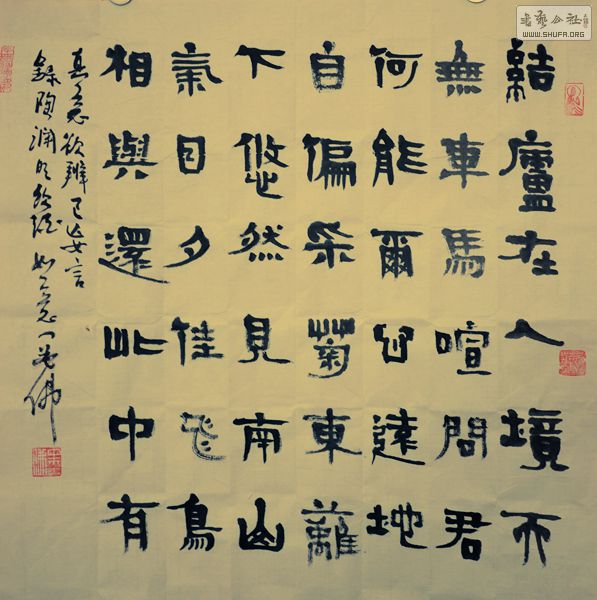 結廬在人境而
無車馬喧問君
何能爾心遠地
自偏采菊東蘺
下悠然見南山
氣日夕佳飛鳥
相與還此中有
真意欲辨已忘言
錄陶淵明飲酒
書藝公社
WWW.SHUFA.ORG